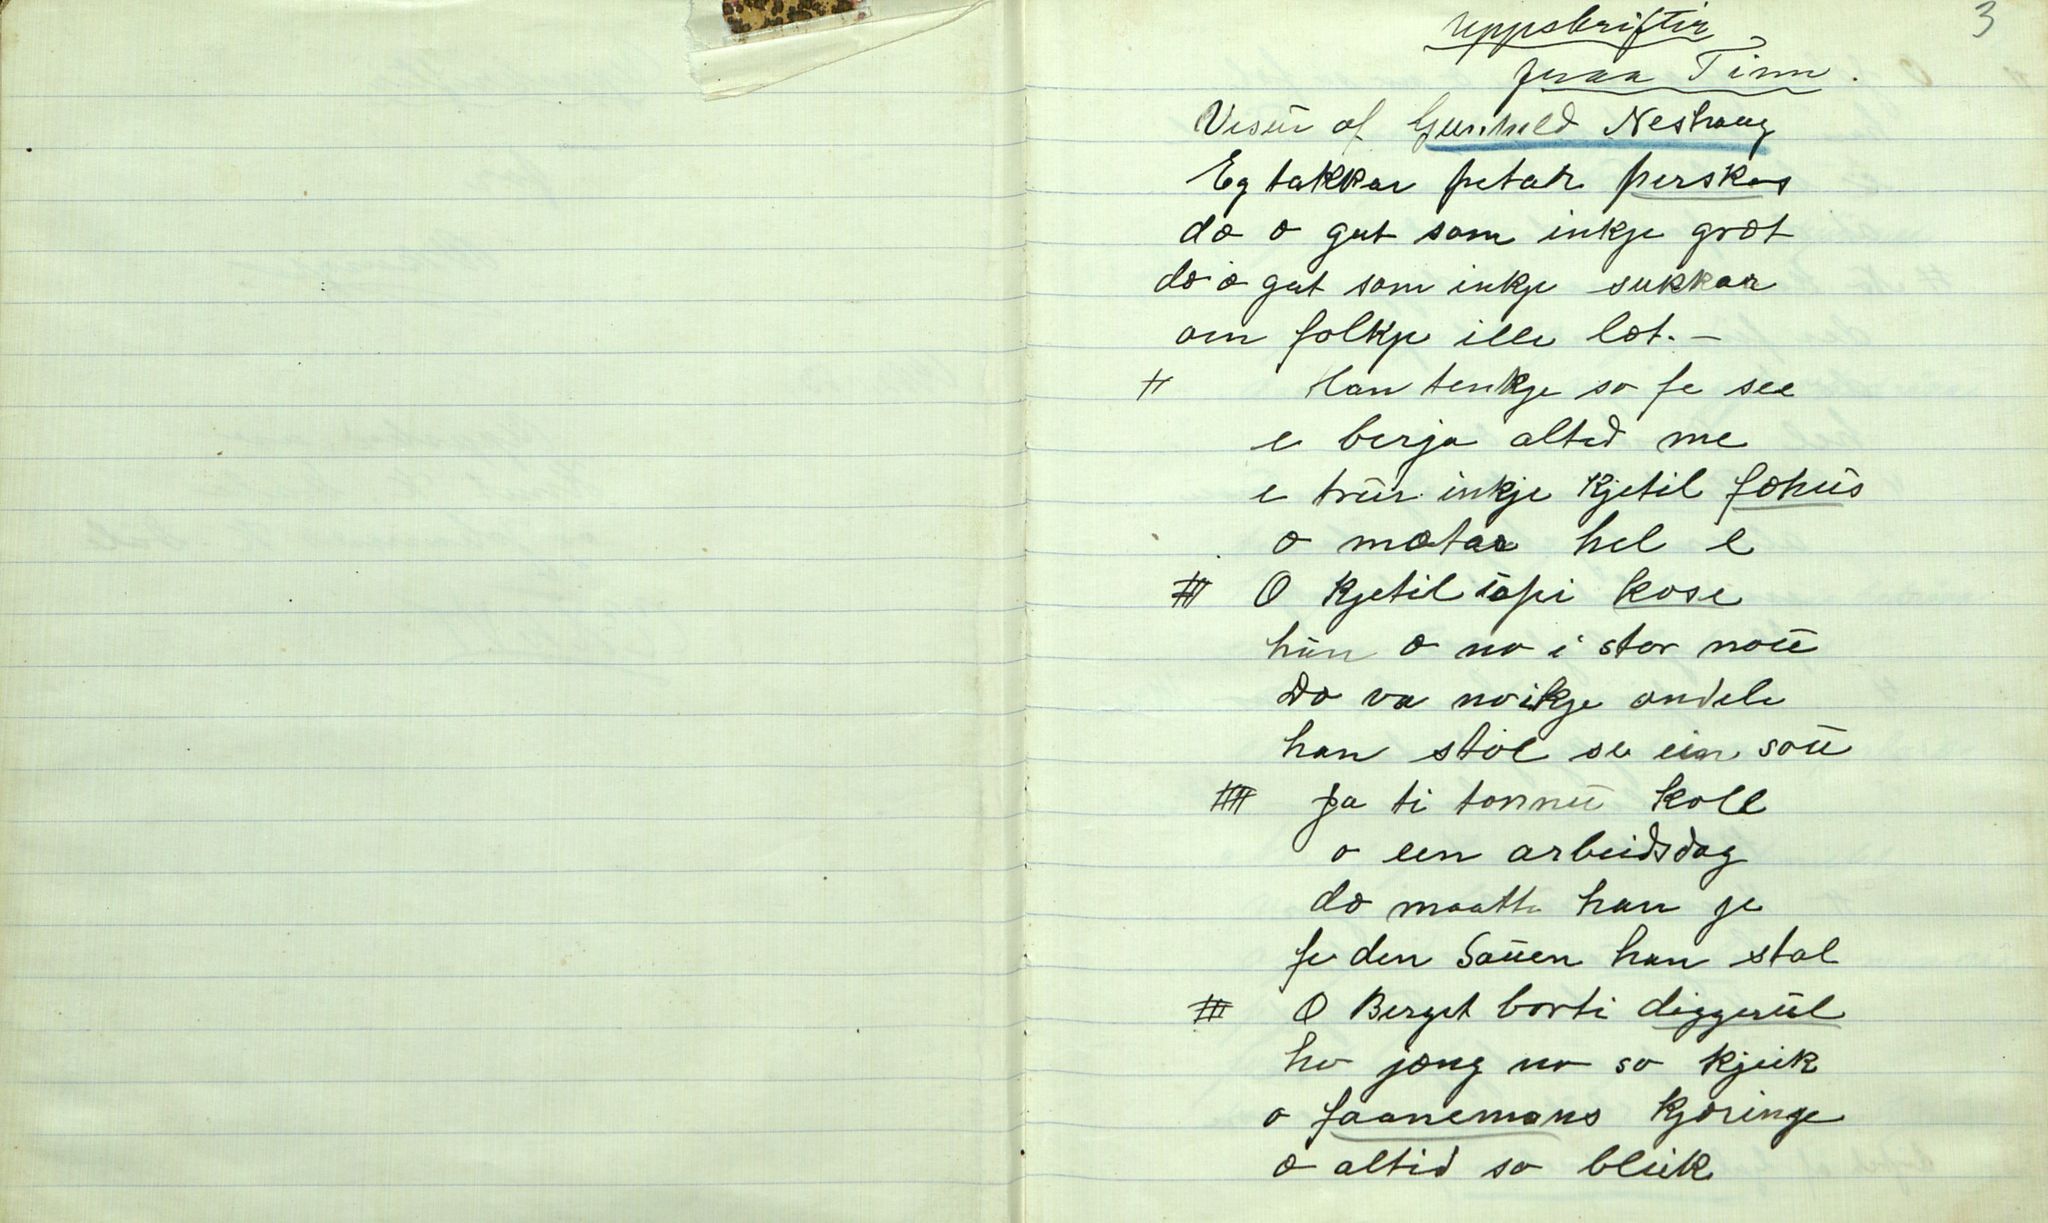 3
Uppskriftir
fraa Tinn.
Visur af Gunhild Neshaug
Eg takkar petar perskas
dæ æ gut som inkje græt
dæ æ gut som inkje sukkar
om folkje ille læt. –
# Han tenkje so fe see
e berja altid me
e trur inkje Kjetil fæhus
o mætar hel e
# O Kjetil i kose
hun æ no i stor nou
Dæ va no ikje andele
han stol se ein sou
# ja ti tonnu koll
o een arbeidsdag
dæ maatte han je
fe den Souen han stal
# O Berget borti diggerul
ho jæng no so kjeik
o faanemans kjæringe
æ altid so bleik